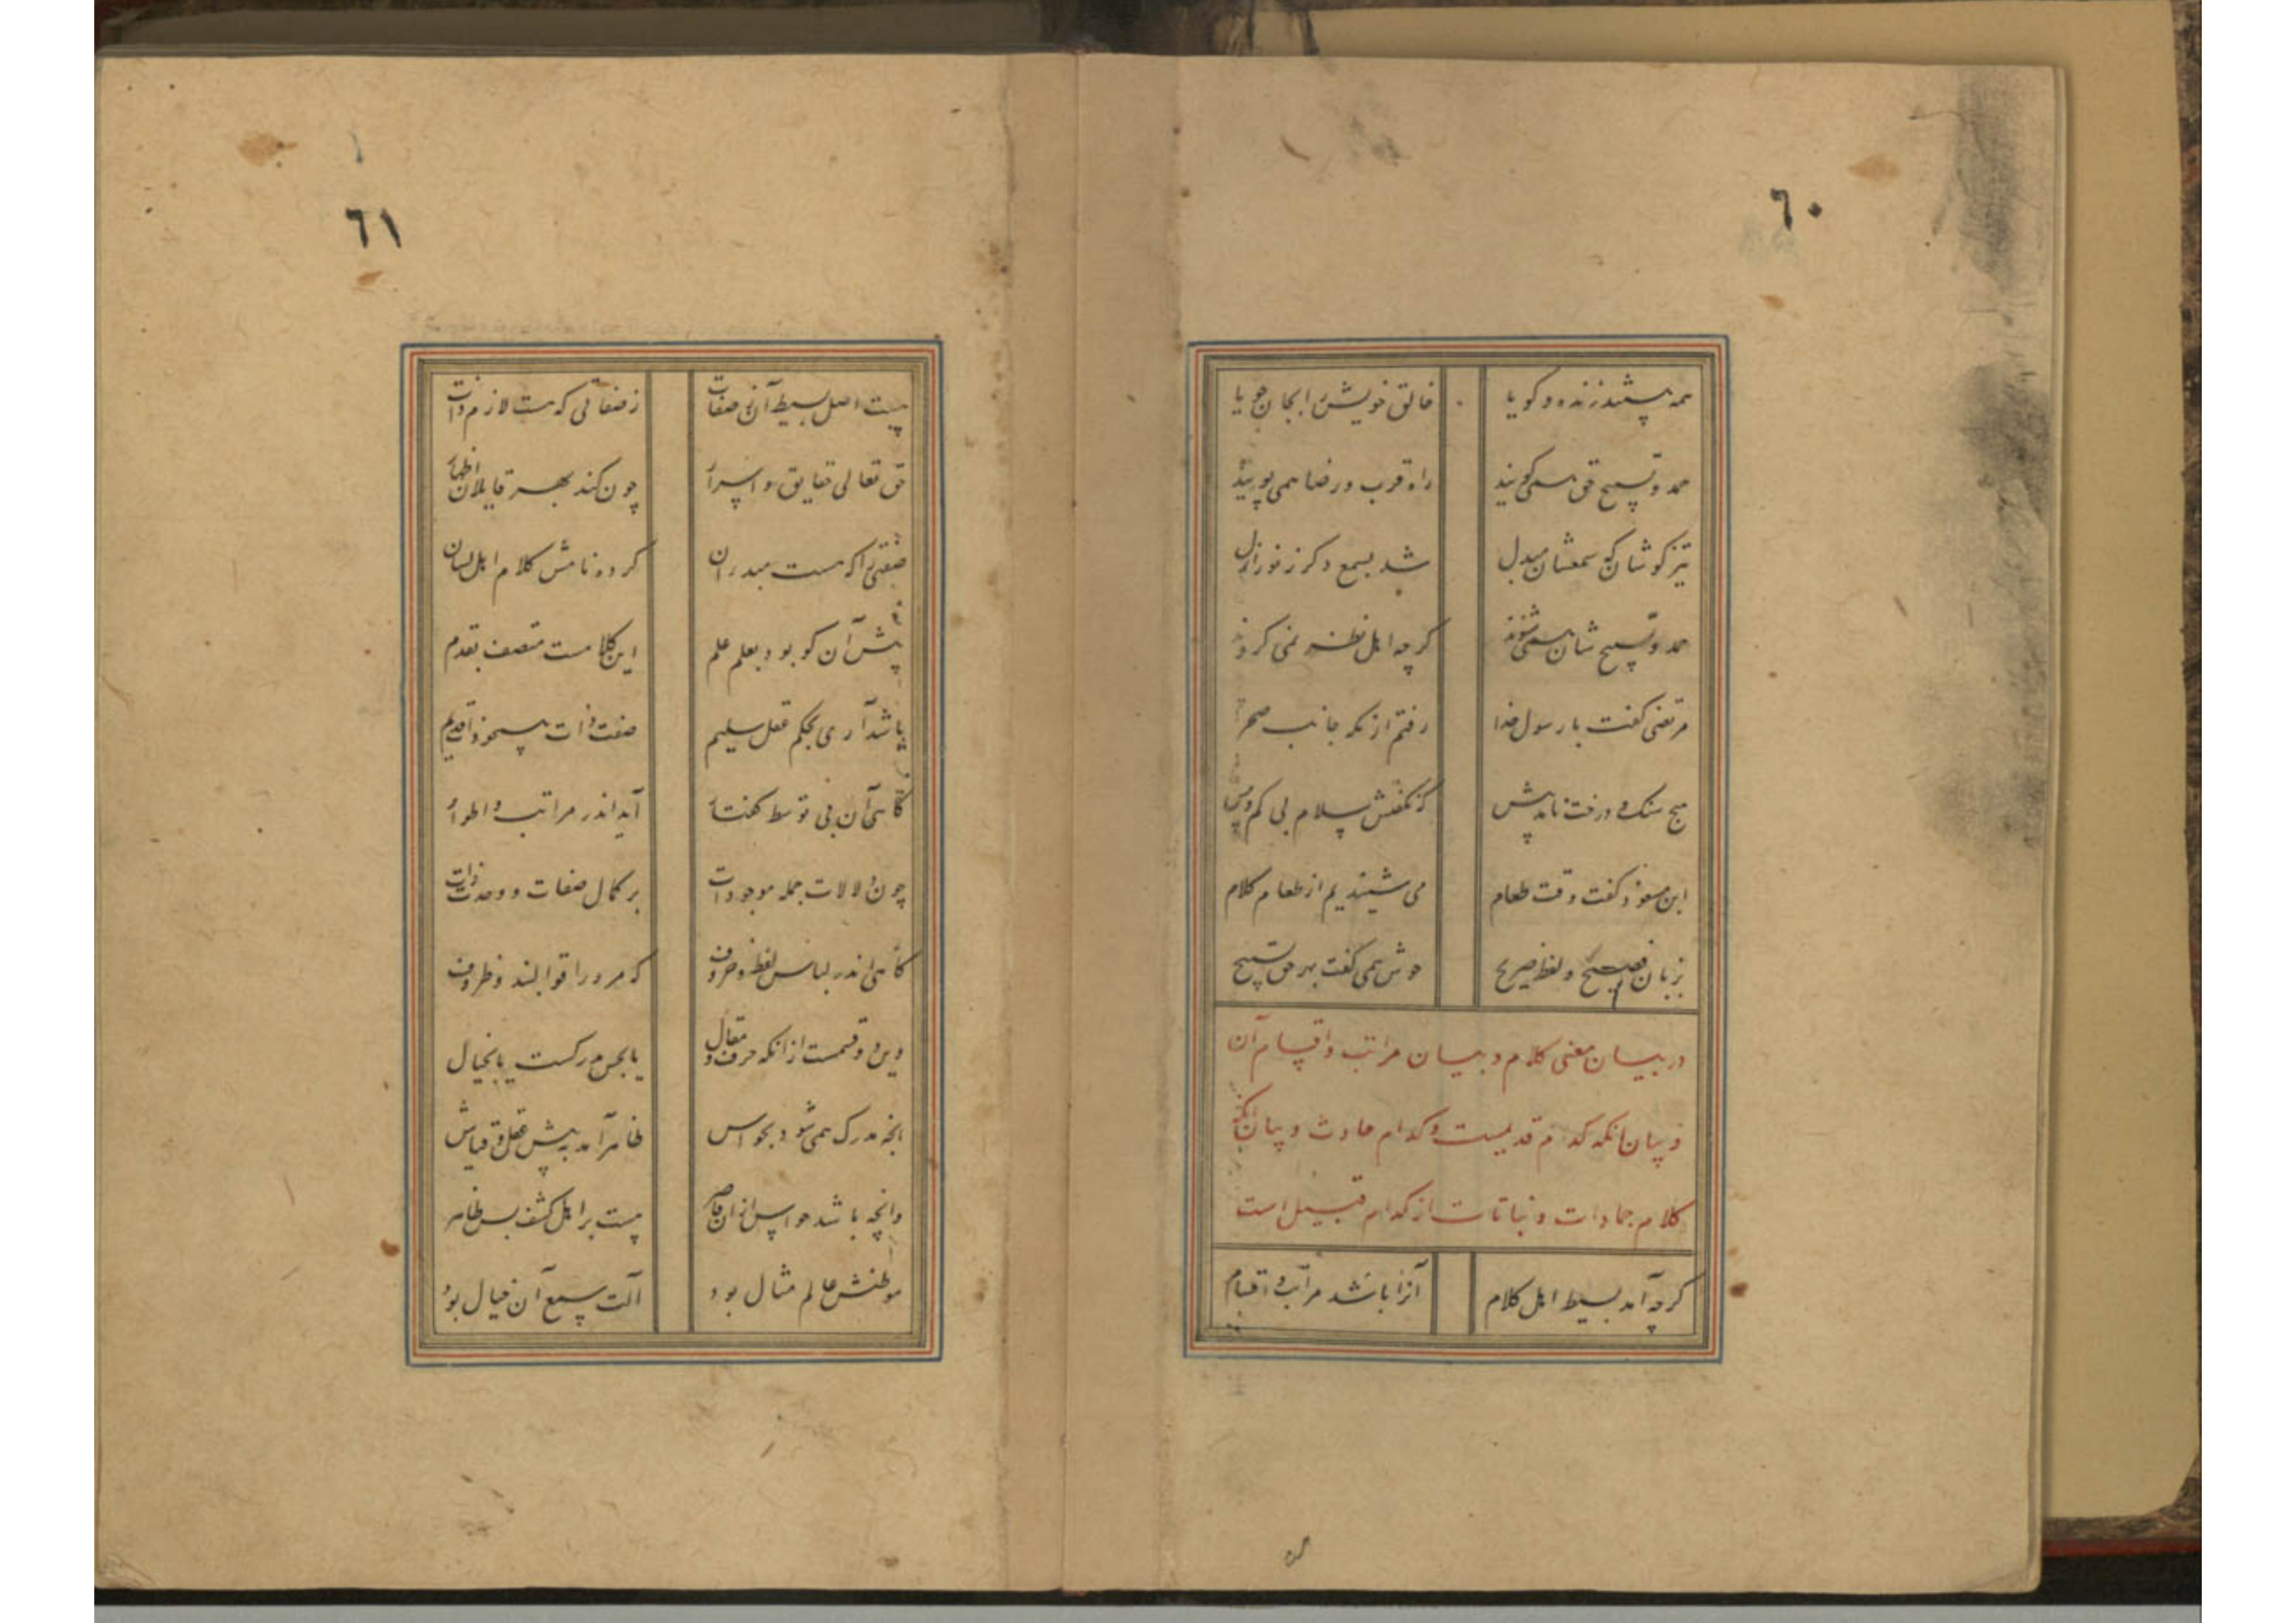 ٦٠
همه هستند زنده و کویا خالق خویش را بجان جویا
حمد و تسبیح حق همی کویند راه قرب و رضا همی پویند
تیز کوشان که سمعشان مبدل شد بسمع دکر ز نور ازل
حمد و تسبیح شان همی شنوند کرچه اهل نظر نمی کروند
مرتضی کفت با رسول خدا رفتم از مکه جانب صحرا
هیچ سنک و درخت نامد پیش که نکفتش سلام بی کم و بیش
ابن مسعود کفت وقت طعام می شنیدیم از طعام کلام
بزبان فصیح و لفظ صریح خوش همی کفت بهر حق تسبیح
در بیان معنی کلام و بیان مراتب و اقسام آن
و بیان آنکه کدام قدیمست و کدام حادث و بیان آنکه
کلام جمادات و نباتات از کدام قبیل است
کرچه آمد بسیط اصل کلام آنرا باشد مراتب و اقسام
٦١
چیست اصل بسیط آن ز صفات ز صفاتی که هست لازم ذات
حق تعالی حقایق و اسرار چون کند بهر قابلان اظهار
صفتی را که هست مبدء آن کرده نامش کلام اهل لسان
پیش آن کو بود بعلم علم این کلامست متصف بقدم
باشد آری بحکم عقل سلیم صفت ذات همچو ذات قدیم
کاهی آن بی توسط کفتار آید اندر مراتب و اطوار
چون دلالات جمله موجودات بر کمال صفات و وحدت ذات
کاهی اندر لباس لفظ و حروف که مر او را قوالبند و ظروف
وین دو قسمست از آنکه حرف و مقال یا بحس مدرکست یا بخیال
آنچه مدرک همی شود بحواس ظاهر آمد به پیش عقل و قیاس
وانچه باشد حواس از آن قاصر هست بر اهل کشف بس ظاهر
موطنش عالم مثال بود آلت سمع آن خیال بود